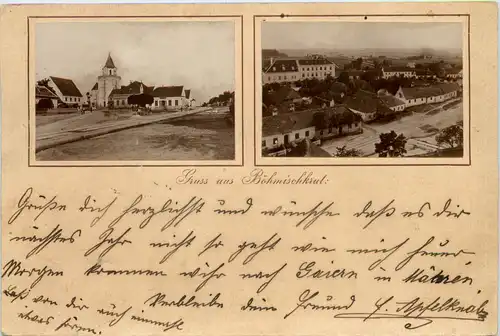 Gruss aus Böhmischkrut:
Grüße dich herzlichst und wünsche daß es dir
nächstes Jahr nicht so geht wie mich heuer
Morgen kommen wir nach Gaiern in Mähren
Laß von dir auch einmal
etwas hören.
Verbleibe dein Freund